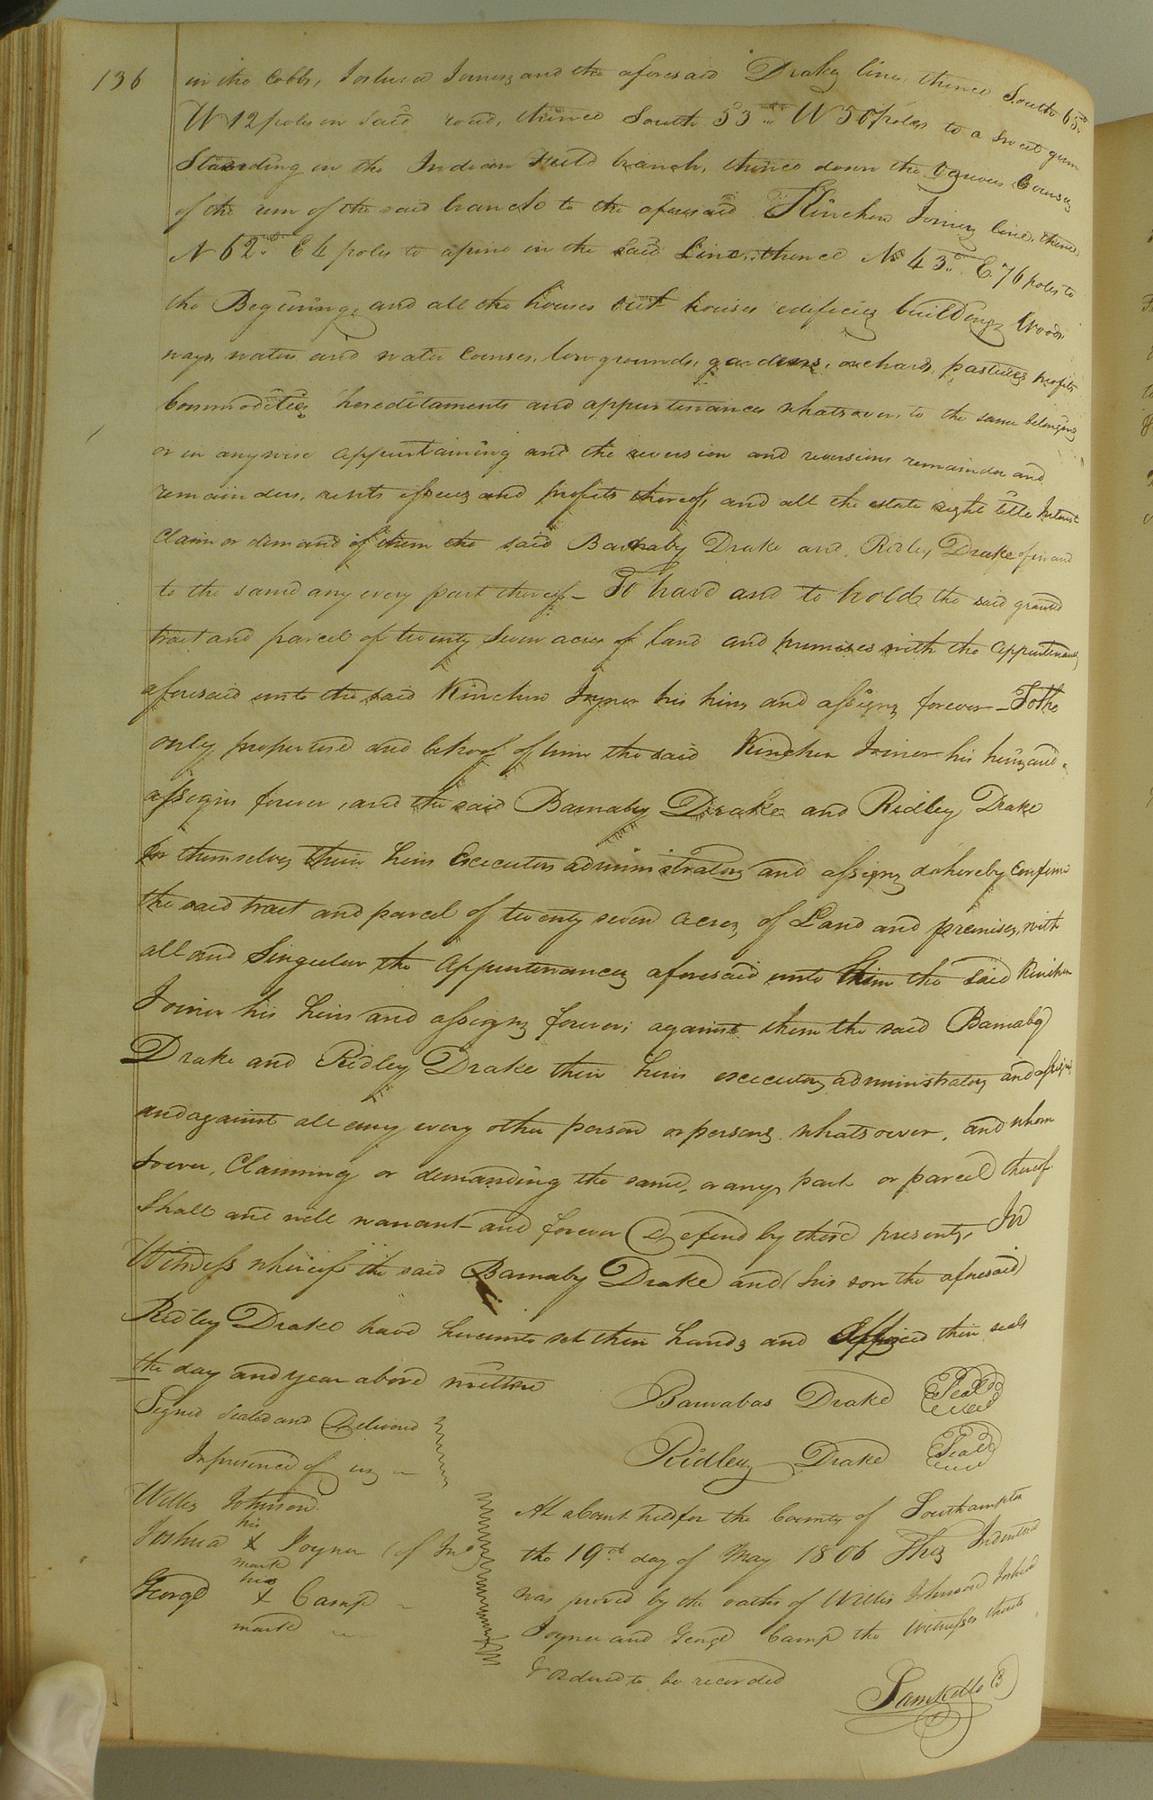 136
in the Cobbs, Joshua Joiners and the aforesaid Drakes line, thence South 65d
W 12 poles on said road, thence South 53d W 50 poles to a sweet gum
Standing in the Indian branch, thence down the Courses
of the run of the said branch to the aforesaid Kinchen Joiners line, thence
N 62d E 4 poles to a pine in the said Line, thence No 43d E 76 poles to
the Begining and all the houses out houses edifices buildings Woods
ways, waters and water Courses, low grounds, gardens, orchards, pastures profits
Commodities hereditaments and appurtenances whatsoever, to the same belonging
or in anywise appurtaining and the reversion and reversions remainder and
remainders, rents issues and profits thereof, and all the estate right title Interest
Claim or demand of them the said Barnaby Drake and Ridley Drake of in and
to the same any every part thereof - To have and to hold, the said granted
tract and parcel of twenty Seven acres of land and premises with the appurtenances
aforesaid unto the said Kinchen Joyner his heirs and assigns forever - To the
only proper use and behoof of him the said Kinchen Joiner his heirs and
assigns forever, and the said Barnaby Drake and Ridley Drake
for themselves their heirs Executors administrators and assigns do hereby Confirm
the said tract and parcel of twenty seven acres of Land and premises, with
all and Singular the appurtenances aforesaid unto him the said Kinchen
Joiner his heirs and assigns forever; against them the said Barnaby
Drake and Ridley Drake their heirs executors administrators and assigns
and against all any every other person or persons whatsoever, and whom
soever, Claiming or demanding the same, or any part or parcel thereof
Shall and will warrant and forever Defend by these presents, In
Witness whereof the said Barnaby Drake and his son the aforesaid
Ridley Drake have hereunto set their hands and affixed their seals
the day and year above written
Barnabas Drake Seal
Signed sealed and Delivered
Ridley Drake Seal
In presence of us
Willis Johnson
his
Joshua X Joyner (of Jno)
mark
his
George X Camp
mark
At a Court held for the County of Southampton
the 19th day of May 1806 This Indenture
was proved by the oaths of Willis Johnson Joshua
Joyner and George Camp the Witnesses thereto
& Ordered to be recorded
Sam Kello